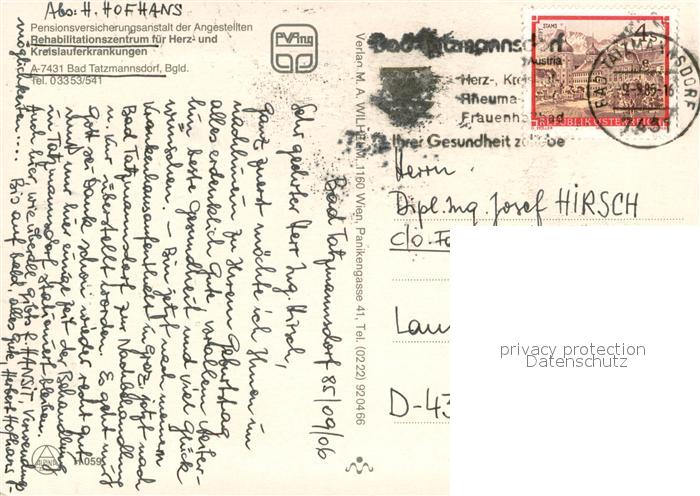 Abs: H. HOFHANS
Pensionsversicherungsanstalt der Angestellten
Rehabilitationszentrum für Herz- und
Kreislauferkrankungen
A-7431 Bad Tatzmannsdorf, Bgld.
Tel. 03353/541
PVAng
Bad Tatzmannsdorf 85/09/06
Sehr geehrter Herr Ing. Hirsch,
ganz zuerst möchte ich Ihnen im
Nachhinein zu Ihrem Geburtstag
alles erdenklich Gute, vor allem weiter-
hin beste Gesundheit und viel Glück
wünschen. – Bin jetzt nach meinem
Krankenhausaufenthalt in Graz jetzt nach
Bad Tatzmannsdorf zur Nachbehandlung
u. Kur überstellt worden. Es geht mir
Gott sei Dank schon wieder recht gut
muß nur hier einige Zeit der Behandlung
in Tatzmannsdorf stationiert bleiben.
Auch hier, wie überall gibts f. HANSIT, Verwendungs-
möglichkeiten... Bis auf bald, alles Gute, Herbert Hofhans
ALPINE
H 059
Verlag M. A. WILHELM, 1160 Wien, Panikengasse 41, Tel. (0222) 920466
Bad Tatzmannsdorf
Austria
Herz-, Kre
Rheuma-
Frauenh
Ihrer Gesundheit zuliebe
STIFT STAMS
4
REPUBLIK ÖSTERREICH
BAD TATZMANNSDORF
-9.-9.85-16
7431
Herrn
Dipl. Ing. Josef HIRSCH
c/o Fa
Lau
D-43
privacy protection
Datenschutz